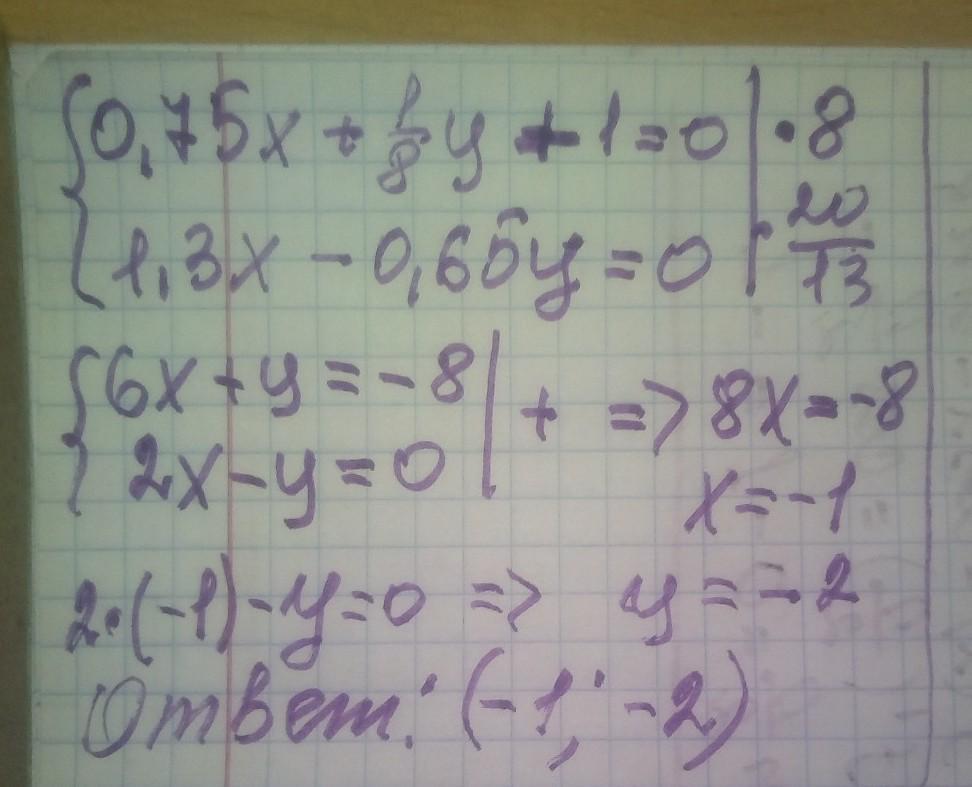 {0,75x + 1/8 y + 1 = 0 | · 8
{1,3x - 0,65y = 0 | · 20/13
{6x + y = -8 | + => 8x = -8
{2x - y = 0 |
x = -1
2·(-1) - y = 0 => y = -2
Ответ: (-1; -2)